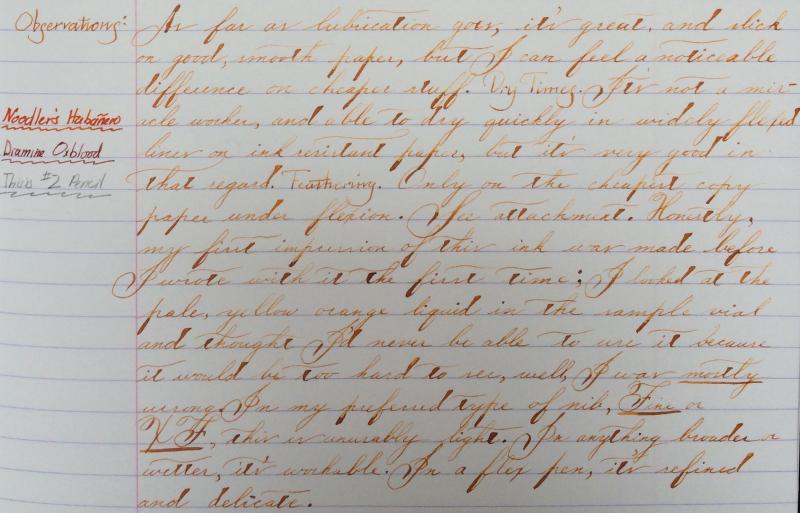 Observations: As far as lubrication goes, it's great, and slick
on good, smooth paper, but I can feel a noticeable
difference on cheaper stuff. Dry Times. It's not a mir-
Noodler's Habañero acle worker, and able to dry quickly in widely flexed
Diamine Oxblood lines on ink resistant paper, but it's very good in
This is #2 Pencil that regard. Feathering. Only on the cheapest copy
paper under flexion. See attachment. Honestly,
my first impression of this ink was made before
I wrote with it the first time; I looked at the
pale, yellow orange liquid in the sample vial
and thought I'd never be able to use it because
it would be too hard to see, well, I was mostly
wrong. In my preferred type of nib, Fine or
XF, this is unusably light. In anything broader or
wetter, it's workable. In a flex pen, it's refined
and delicate.